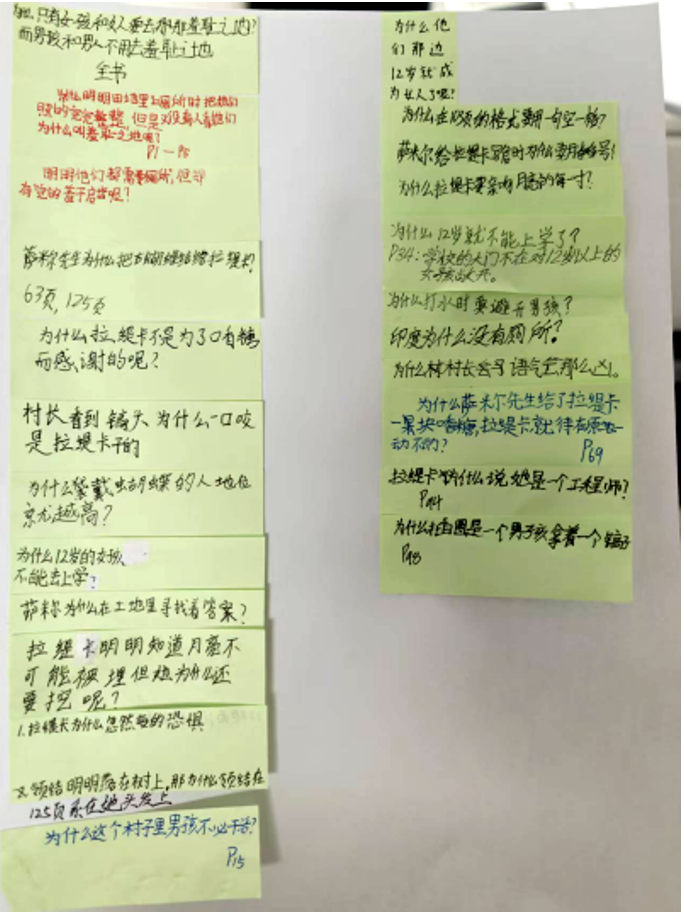 只有女孩和女人要去那那羞耻之地?
而男孩和男人不用去羞耻之地
全书
为什么明明田地里上厕所时把她们
照的完完整整 但是又没有人看她们
为什么叫羞耻之地呢?
P1—P8
明明他们都需要厕所,但却
盖子启齿呢?
萨米尔先生为什么把蝴蝶结给拉缇卡?
63页,125页
为什么拉缇卡不是为了口香糖
而感谢的呢?
村长看到镐头为什么一口咬
是拉缇卡干的
为什么戴蝴蝶的人地位
就越高?
为什么12岁的女孩
不能去上学?
萨米尔为什么在土地里寻找着答案?
拉缇卡明明知道月亮不
可能被埋但她为什么还
要挖呢?
1.拉缇卡为什么忽然的恐惧
2.领结明明落在树上,那为什么领结在
125页系在她头发上
为什么这个村子里男孩不必干活?
P15
为什么他
们那边
12岁就成
为女人了呢?
为什么在10页的格式要用一句空一格?
萨米尔给拉缇卡写信时为什么要用省略号!
为什么拉缇卡要亲吻月亮的每一寸?
为什么12岁就不能上学了?
P34:学校的大门不在对12岁以上的
女孩敞开。
为什么打水时要避开男孩?
印度为什么没有厕所?
为什么村长语气那么凶。
为什么萨米尔先生给了拉缇卡
一块口香糖,拉缇卡就待在原地一
动不动?
P69
拉缇卡为什么说她是一个工程师?
P94
为什么封面是一个男子孩拿着一个镐子
P98